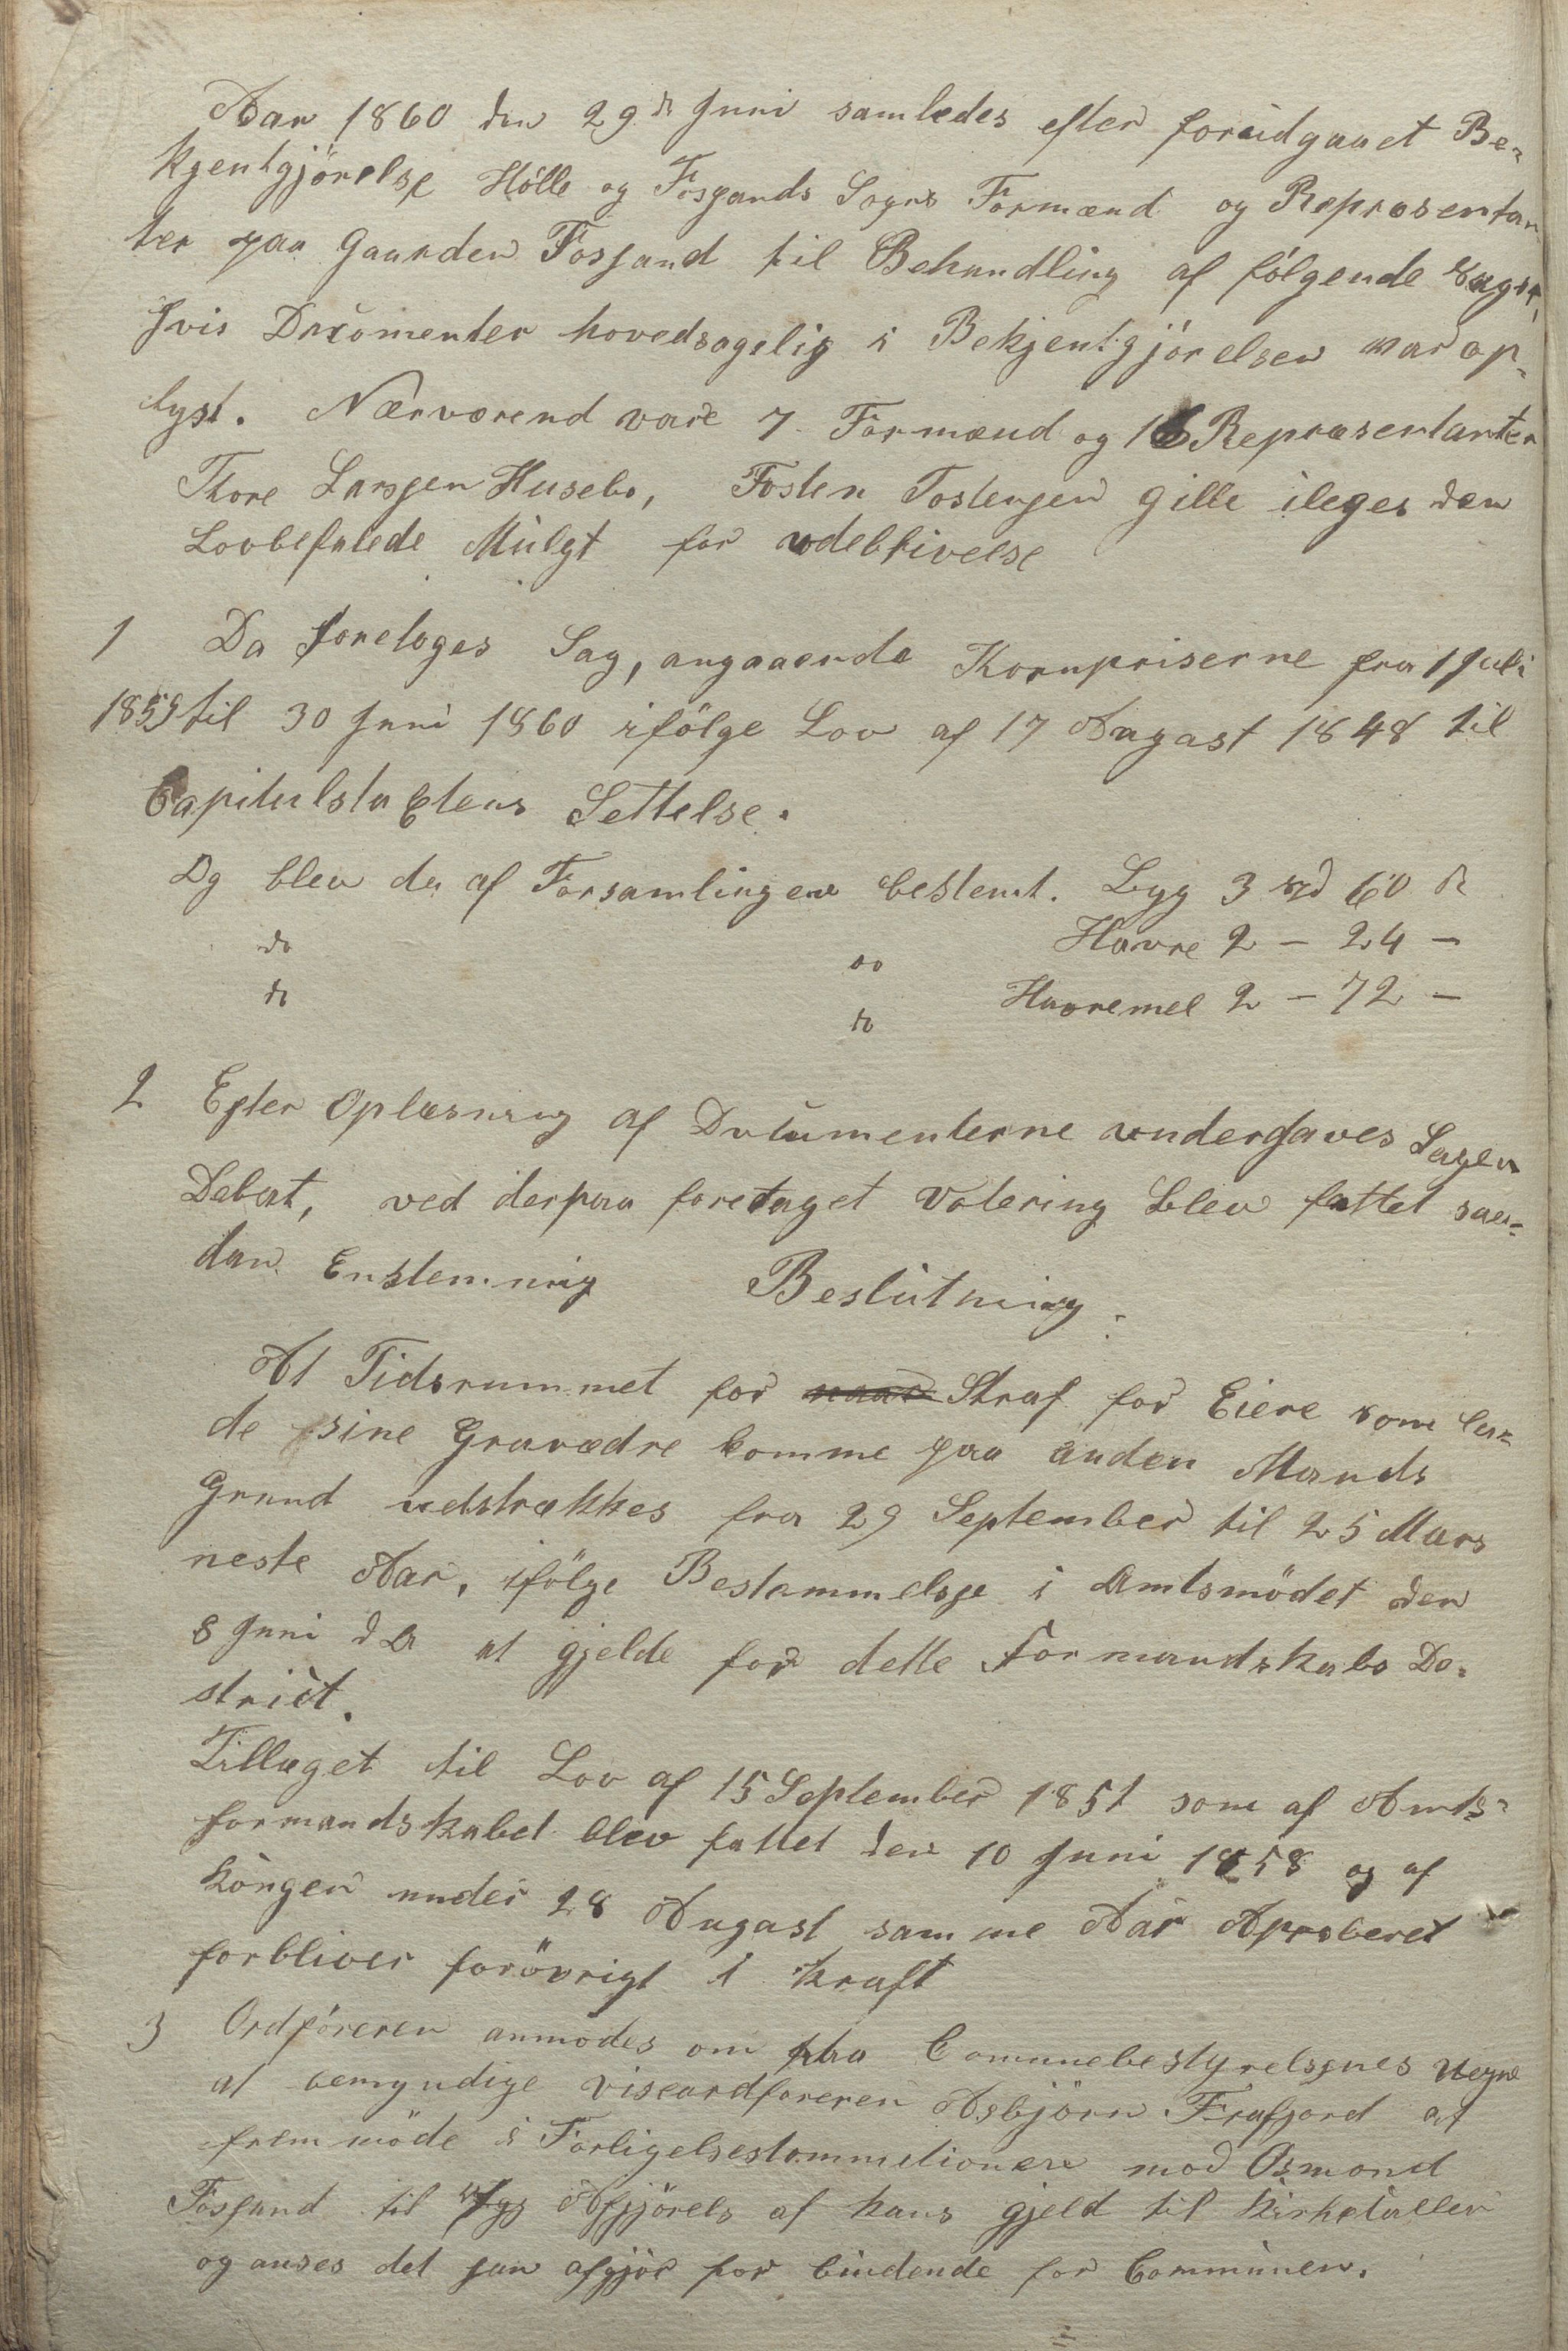 Aar 1860 den 29de Juni samledes efter forudgaaet Be-
kjentgjörelse Hölle og Fosgands Sogns Formænd og Repræsentan-
ter paa Gaarden Fossand til Behandling af følgende Sager,
hvis Documenter hovedsagelig i Bekjentgjörelsen var op-
lyst. Nærværend vare 7 Formænd og 16 Repræsentanter
Thore Larssen Husebø, Tosten Tostensen Gille ileges den
Lovbefalede Mulgt for udeblivelse
1 Da foretoges Sag, angaaende Kornpriserne fra 1 Juli
1859 til 30 Juni 1860 ifölge Lov af 17 August 1848 til
Capitulstaxtens Settelse.
Og blev da af Forsamlingen bestemt. Byg 3 60
do do Havre 2 - 24 -
do do Havremel 2 - 72 -
2 Efter Oplæsning af Documenterne undergaves Sagen
Debat, ved derpaa foretaget Votering blev fattet saa-
dan Enstemmig Beslutning:
At Tidsrummet for Straf for Eiere som la-
de sine Gravædre komme paa anden Mands
Grund udstrækkes fra 29 September til 25 Mars
neste Aar, ifölge Bestemmelse i Amtsmödet den
8 Juni d A at gjelde for dette Formandskabs De-
strict.
Tillæget til Lov af 15 September 1851 som af Amts-
formandskabet blev fattet den 10 Juni 1858 og af
Kongen under 28 August samme Aar Aproberet
forbliver forövrigt i kraft
3 Ordföreren anmodes om paa Comunebestyrelsens Vegne
at bemyndige viseordföreren Asbjörn Frafjord at
fremmöde i Forligelseskommetionen mod Osmond
Fossand til Afgjörels af hans gjeld til Kirketallen
og anses det han afgjör for bindende for Communen.